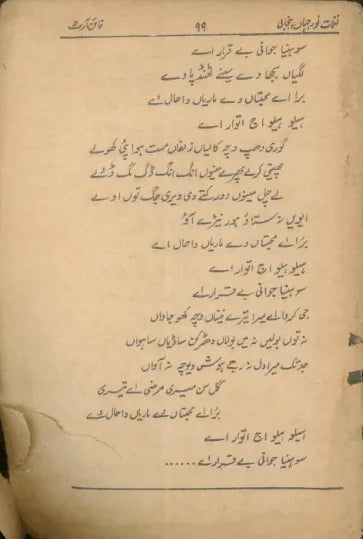 نغمات نور جہاں پنجابی ۹۹ خالق آرٹ
سوہنیا جوانی بے قرار اے
لگیاں بجھا دے سینے ٹھنڈ پا دے
برا اے محبتاں دے ماریاں دا حال اے
ہیلو ہیلو اج اتوار اے
گوری دھپ وچہ کالیاں زلفاں مست ہوا پئی کھولے
چھیتی کرے پھرے مینوں انگ انگ ڈگ مگ ڈولے
لے چل مینوں دور کتے دی ویری جگ توں اوہلے
ایویں نہ ستا ؤ ہور نیڑے آؤ
بڑا اے محبتاں دے ماریاں دا حال اے
ہیلو ہیلو اج اتوار اے
سوہنیا جوانی بے قرار اے
جی کردا اے میرا تیرے نیناں وچہ کھو جاواں
نہ توں بولیں نہ میں بولاں دھڑکن ساڈیاں ساہواں
جد تک میرا دل نہ رجے ہوشی وچہ نہ آواں
گل سن میری مرضی اے تیری
بڑا اے محبتاں دے ماریاں دا حال اے
ہیلو ہیلو اج اتوار اے
سوہنیا جوانی بے قرار اے ......